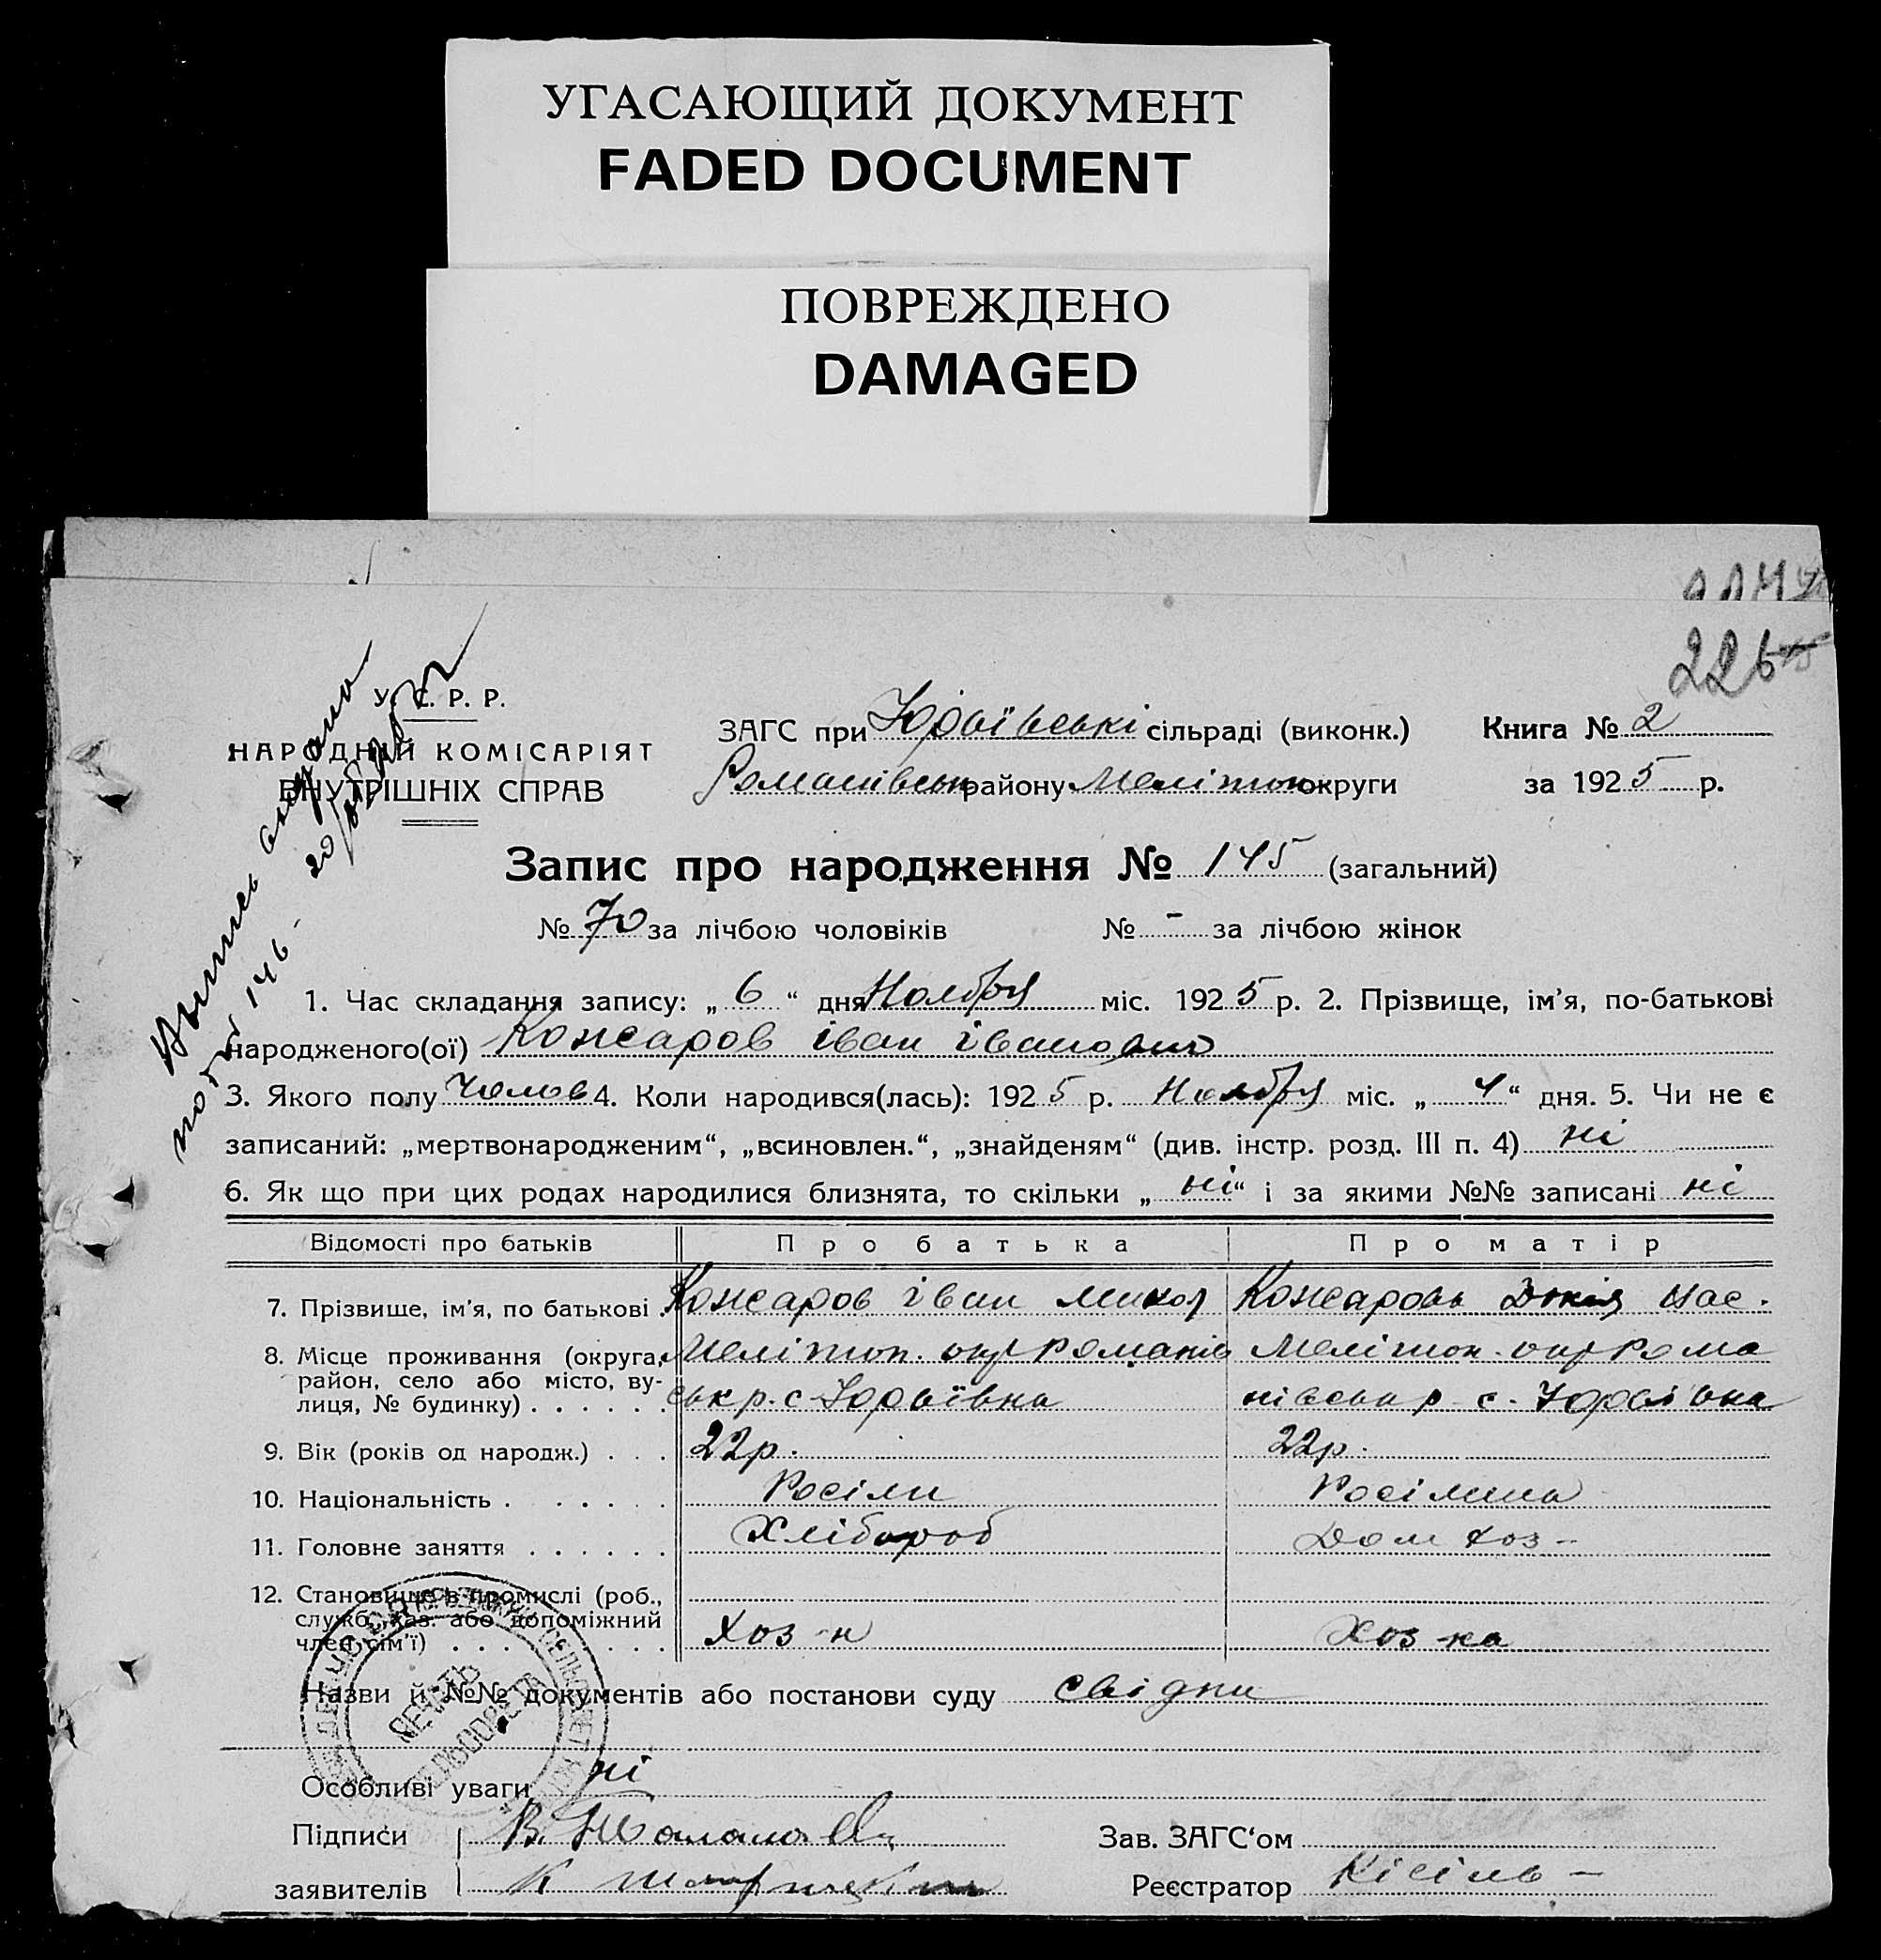 УГАСАЮЩИЙ ДОКУМЕНТ
FADED DOCUMENT
ПОВРЕЖДЕНО
DAMAGED
226
У. С. Р. Р.
НАРОДНІЙ КОМІСАРІЯТ
ВНУТРІШНІХ СПРАВ
ЗАГС при Юрьївські сільраді (виконк.) Книга № 2
Романівськ району Мелітоп округи за 1925 р.
Выпись выдана
Запис про народження № 145 (загальний)
№ 70 за лічбою чоловіків № - за лічбою жінок
1. Час складання запису: „ 6 “ дня Ноября міс. 1925 р. 2. Прізвище, ім'я, по-батькові
народженого(ої) Кожаров іван івано
3. Якого полу Чолов 4. Коли народився(лась): 1925 р. Ноября міс. „ 4 “ дня. 5. Чи не є
записаний: „мертвонародженим“, „всиновлен.“, „знайденям“ (див. інстр. розд. III п. 4) ні
6. Як що при цих родах народилися близнята, то скільки „ ні “ і за якими №№ записані ні
Відомості про батьків Про батька Про матір
7. Прізвище, ім'я, по батькові . Кожаров іван Микол Кожарова Докія
8. Місце проживання (округа, район, село або місто, вулиця, № будинку) . . . . . . Мелітоп. окр Романів Мелітоп. окр Рома
ськ р. с-Юрьївка нівськ р с. Юрьївка
9. Вік (років од народж.) . . . 22р. 22р.
10. Національність . . . . . . Росіян Росіянка
11. Головне заняття . . . . . . Хлібороб Дом хоз-
12. Становище в промислі (роб., служб., хаз. або допоміжний член сім'ї) . . . . . . . . Хоз-н Хоз-ка
Назви й №№ документів або постанови суду свідки
Особливі уваги ні
ПЕЧАТЬ
СЕЛЬСОВЕТА
Підписи В. Зав. ЗАГС'ом
заявителів К Реєстратор Кісіль -